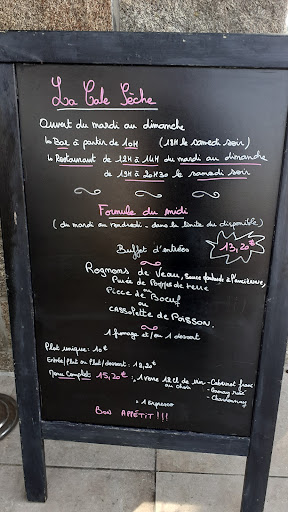 La Cale Sèche
Ouvert du mardi au dimanche
↳ Bar à partir de 10H (18H le samedi soir)
↳ Restaurant de 12H à 14H du mardi au dimanche
de 19H à 20H30 le samedi soir
Formule du midi
(du mardi au vendredi - dans la limite du disponible)
13,20€
Buffet d'entrées
Rognons de Veau, sauce à l'ancienne,
Purée de Pommes de terre
ou
Pièce de Boeuf
ou
CASSOLETTE de POISSON.
1 fromage et/ou 1 dessert
Plat unique: 10€
Entrée/plat ou Plat/dessert: 12,20€
Menu Complet 15,20€: 1 Verre 12cl de vin - Cabernet franc
au choix - Gamay rosé
- Chardonnay
+ 1 Espresso
BON APPÉTIT!!!